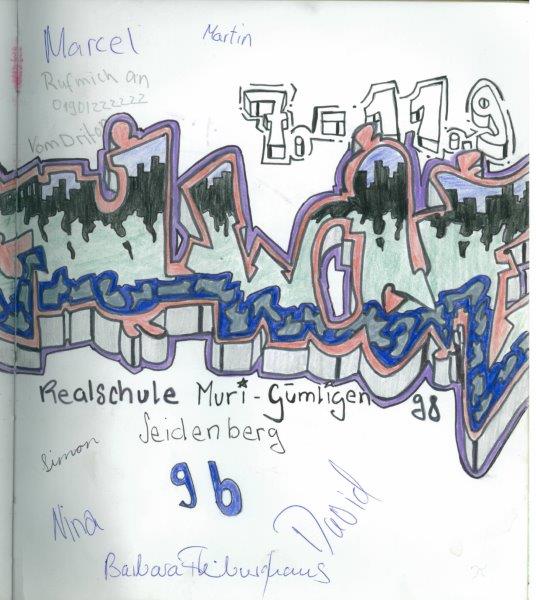 Marcel
Martin
Ruf mich an
0190/222222
Vom Driton
7.-11.9
Realschule Muri-Gümligen 98
Seidenberg
Simon
9b
Nina
David
Barbara